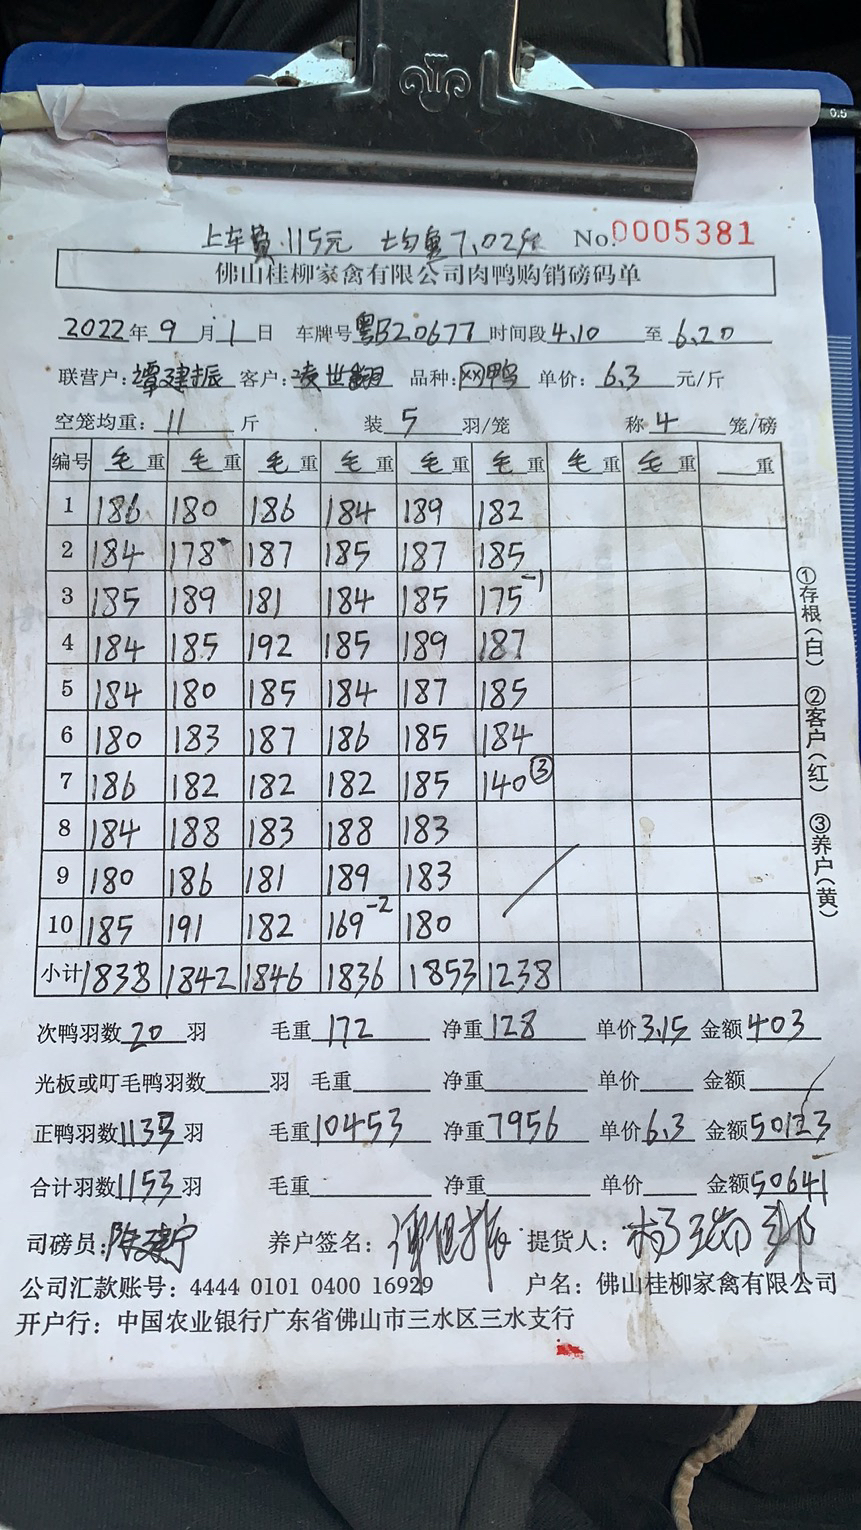 0.5
上车费.115元 均重7.02斤 No.0005381
佛山桂柳家禽有限公司肉鸭购销磅码单
2022年9月1日 车牌号粤B20677 时间段4.10至6.20
联营户:谭建振 客户:凌世 品种:网鸭 单价:6.3元/斤
空笼均重:11斤 装5羽/笼 称4笼/磅
编号 毛重 毛重 毛重 毛重 毛重 毛重 毛重 毛重 重
1 186 180 186 184 189 182
2 184 178 187 185 187 185
3 185 189 181 184 185 175-1
4 184 185 192 185 189 187
5 184 180 185 184 187 185
6 180 183 187 186 185 184
7 186 182 182 182 185 140③
8 184 188 183 188 183
9 180 186 181 189 183
10 185 191 182 169-2 180
小计 1838 1842 1846 1836 1853 1238
①存根(白) ②客户(红) ③养户(黄)
次鸭羽数20羽 毛重172 净重128 单价3.15 金额403
光板或叮毛鸭羽数 羽 毛重 净重 单价 金额
正鸭羽数1133羽 毛重10453 净重7956 单价6.3 金额50123
合计羽数1153羽 毛重 净重 单价 金额50641
司磅员:陈建宁 养户签名:谭建振 提货人:
公司汇款账号:4444 0101 0400 16929 户名:佛山桂柳家禽有限公司
开户行:中国农业银行广东省佛山市三水区三水支行